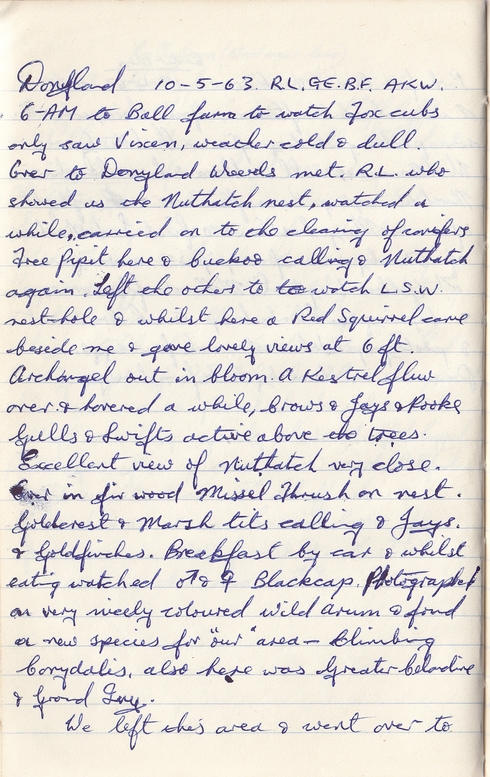 Donyland 10-5-63. R.L. G.E. B.F. A.K.W.
6-AM to Ball farm to watch Fox cubs
only saw Vixen, weather cold & dull.
Over to Donyland Woods met. R.L. who
showed us the Nuthatch nest, watched a
while, carried on to the clearing of conifers
Tree Pipit here & Cuckoo calling & Nuthatch
again. Left the others to to watch L.S.W.
nest-hole & whilst here a Red Squirrel came
beside me & gave lovely views at 6 ft.
Archangel out in bloom. A Kestrel flew
over & hovered a while, Crows & Jays & Rooks
Gulls & Swifts active above the trees.
Excellent view of Nuthatch very close.
Over in fir wood Missel Thrush on nest.
Goldcrest & Marsh tits calling & Jays.
& Goldfinches. Breakfast by car & whilst
eating watched ♂ & ♀ Blackcap. Photographed
a very nicely coloured wild Arum & found
a new species for "our" area - Climbing
Corydalis, also here was Greater Celandine
& Ground Ivy.
We left this area & went over to